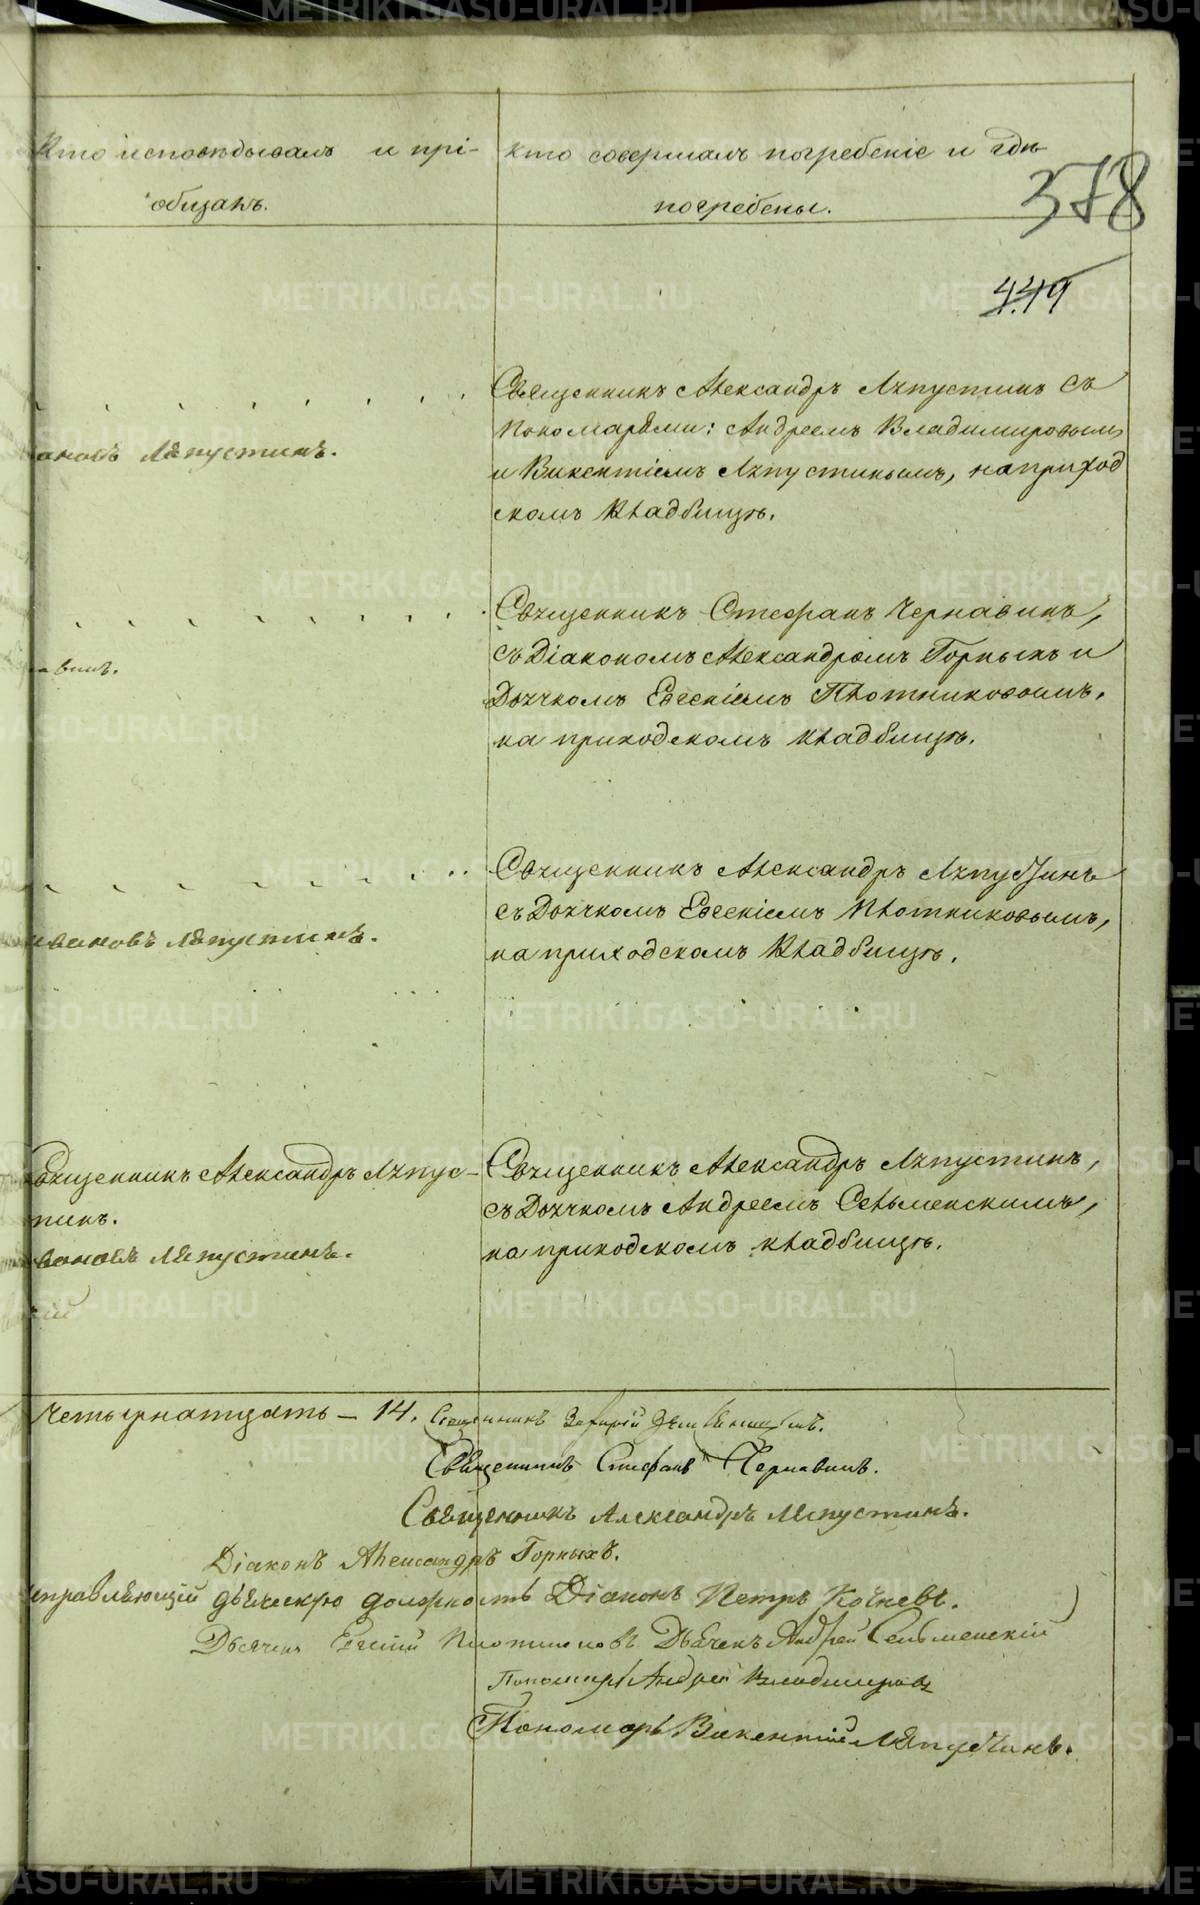 METRIKI.GASO-URAL.RU
Кто исповѣдывалъ и прі-
общалъ.
кто совершалъ погребеніе и гдѣ
погребены.
378
449
Священникъ Александръ Ляпустинъ съ
пономарями: Андреемъ Владимировымъ
и Викентіемъ Ляпустинымъ, на приход
скомъ кладбищѣ.
ановъ Ляпустинъ.
Священникъ Стефанъ Чернавинъ,
съ Діакономъ Александромъ Горныхъ и
Дьячкомъ Евсеніемъ Плотниковымъ,
на приходскомъ кладбищѣ.
авинъ.
Священникъ Александръ Ляпустинъ
съ Дьячкомъ Евсеніемъ Плотниковымъ,
на приходскомъ кладбищѣ.
вановъ Ляпустинъ.
Священникъ Александръ Ляпус-
тинъ.
вановъ Ляпустинъ.
кій
Священникъ Александръ Ляпустинъ,
съ Дьячкомъ Андреемъ Сельменскимъ,
на приходскомъ кладбищѣ.
Четырнатцать - 14. Священникъ
Священникъ Стефанъ Чернавинъ.
Священникъ Александръ Ляпустинъ.
Діаконъ Александръ Горныхъ.
справляющій дьяческую должность Діаконъ Петръ Кочневъ.
Дьячекъ Плотниковъ Дьячекъ Андрей Сельменскій
Пономарь Андрей Владимировъ
Пономарь Викентій Ляпустинъ.